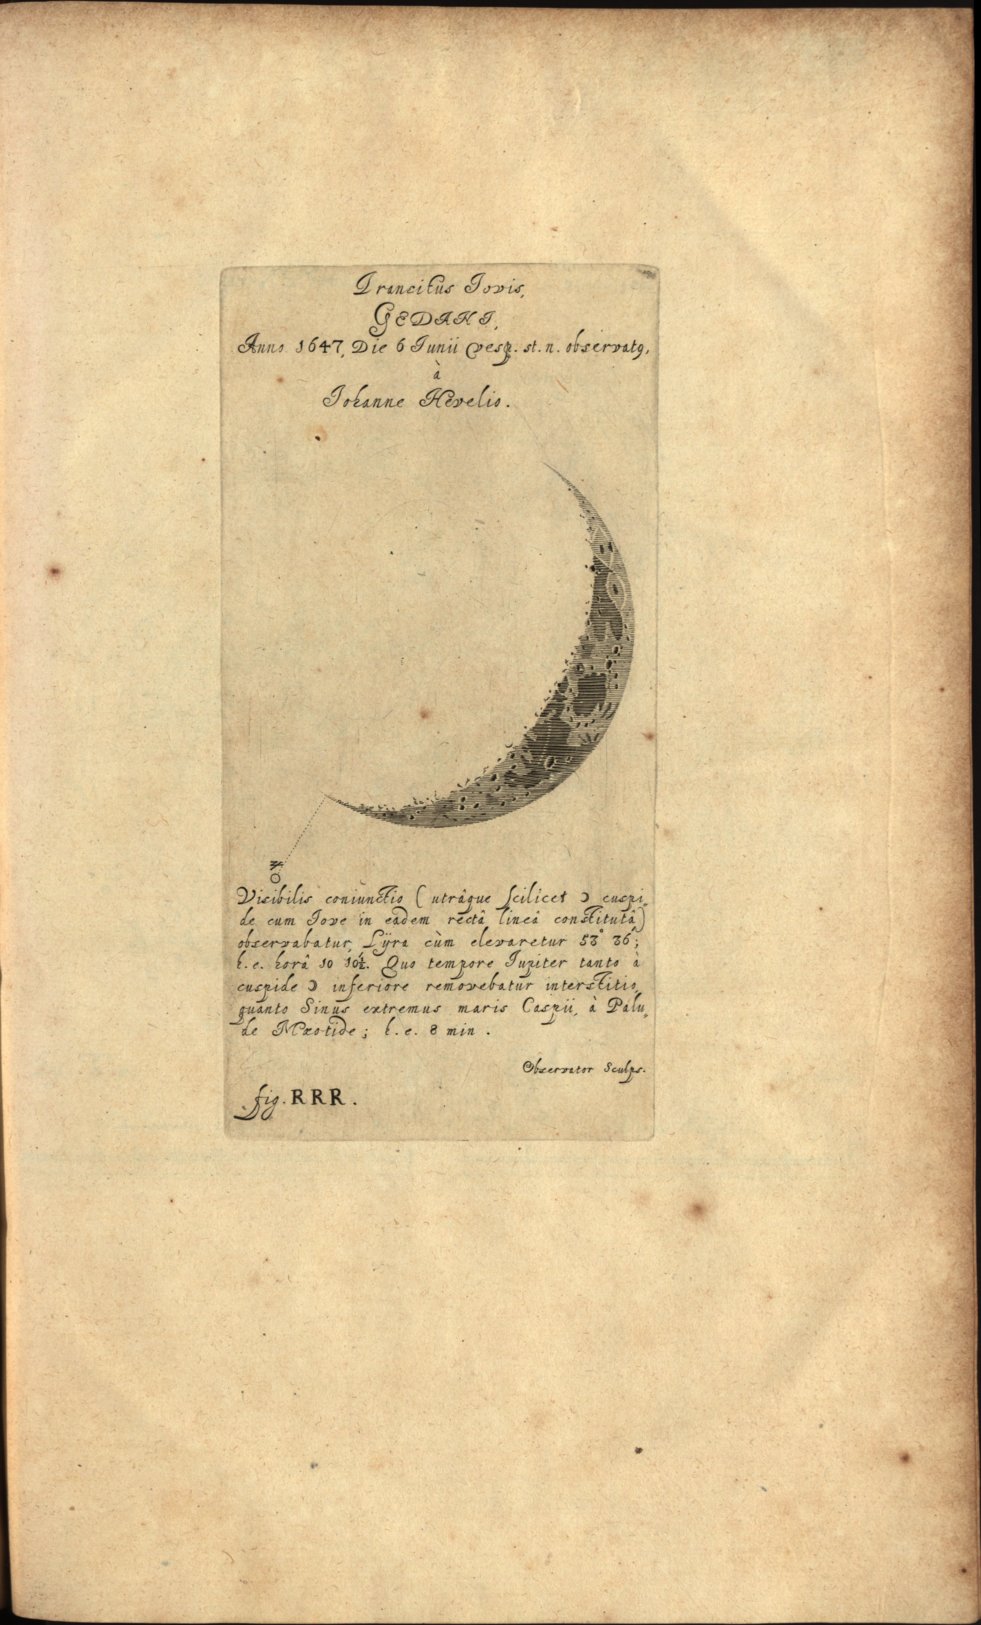 Transitus Iovis,
GEDANI,
Anno 1647, Die 6 Iunii vesp. st. n. observatꝯ,
à
Iohanne Hevelio.
♃
Visibilis coniunctio (utrâque scilicet ☽ cuspi,
de cum Iove in eâdem rectâ lineâ constitutâ)
observabatur, Lÿra cùm elevaretur 53° 36';
h. e. horâ 10 10½. Quo tempore Iupiter tanto à
cuspide ☽ inferiore removebatur interstitio,
quanto Sinus extremus maris Caspii, à Palu,
de Mæotide; h. e. 8 min.
Observator Sculps.
fig. RRR.